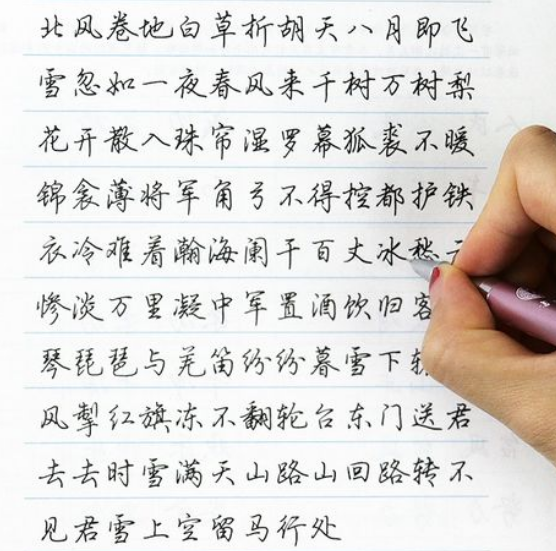 北风卷地白草折胡天八月即飞
雪忽如一夜春风来千树万树梨
花开散入珠帘湿罗幕狐裘不暖
锦衾薄将军角弓不得控都护铁
衣冷难着瀚海阑干百丈冰愁云
惨淡万里凝中军置酒饮归客
琴琵琶与羌笛纷纷暮雪下辕
风掣红旗冻不翻轮台东门送君
去去时雪满天山路山回路转不
见君雪上空留马行处